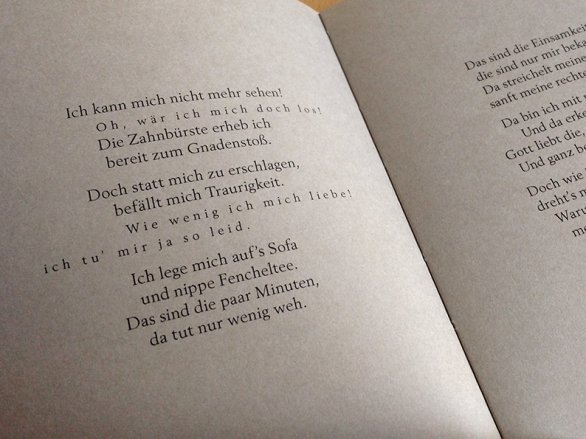 Ich kann mich nicht mehr sehen!
Oh, wär ich mich doch los!
Die Zahnbürste erheb ich
bereit zum Gnadenstoß.
Doch statt mich zu erschlagen,
befällt mich Traurigkeit.
Wie wenig ich mich liebe!
ich tu' mir ja so leid.
Ich lege mich auf's Sofa
und nippe Fencheltee.
Das sind die paar Minuten,
da tut nur wenig weh.
Das sind die Einsamkeit
die sind nur mir
Da streichelt meine
sanft meine
Da bin ich mit
Und da
Gott liebt die,
Und ganz
Doch wie
dreht's